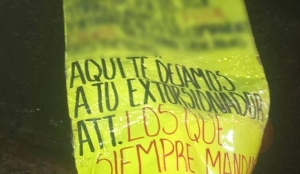 AQUI TE DEJAMOS
A TU EXTORSIONADOR
ATT. LOS QUE
SIEMPRE